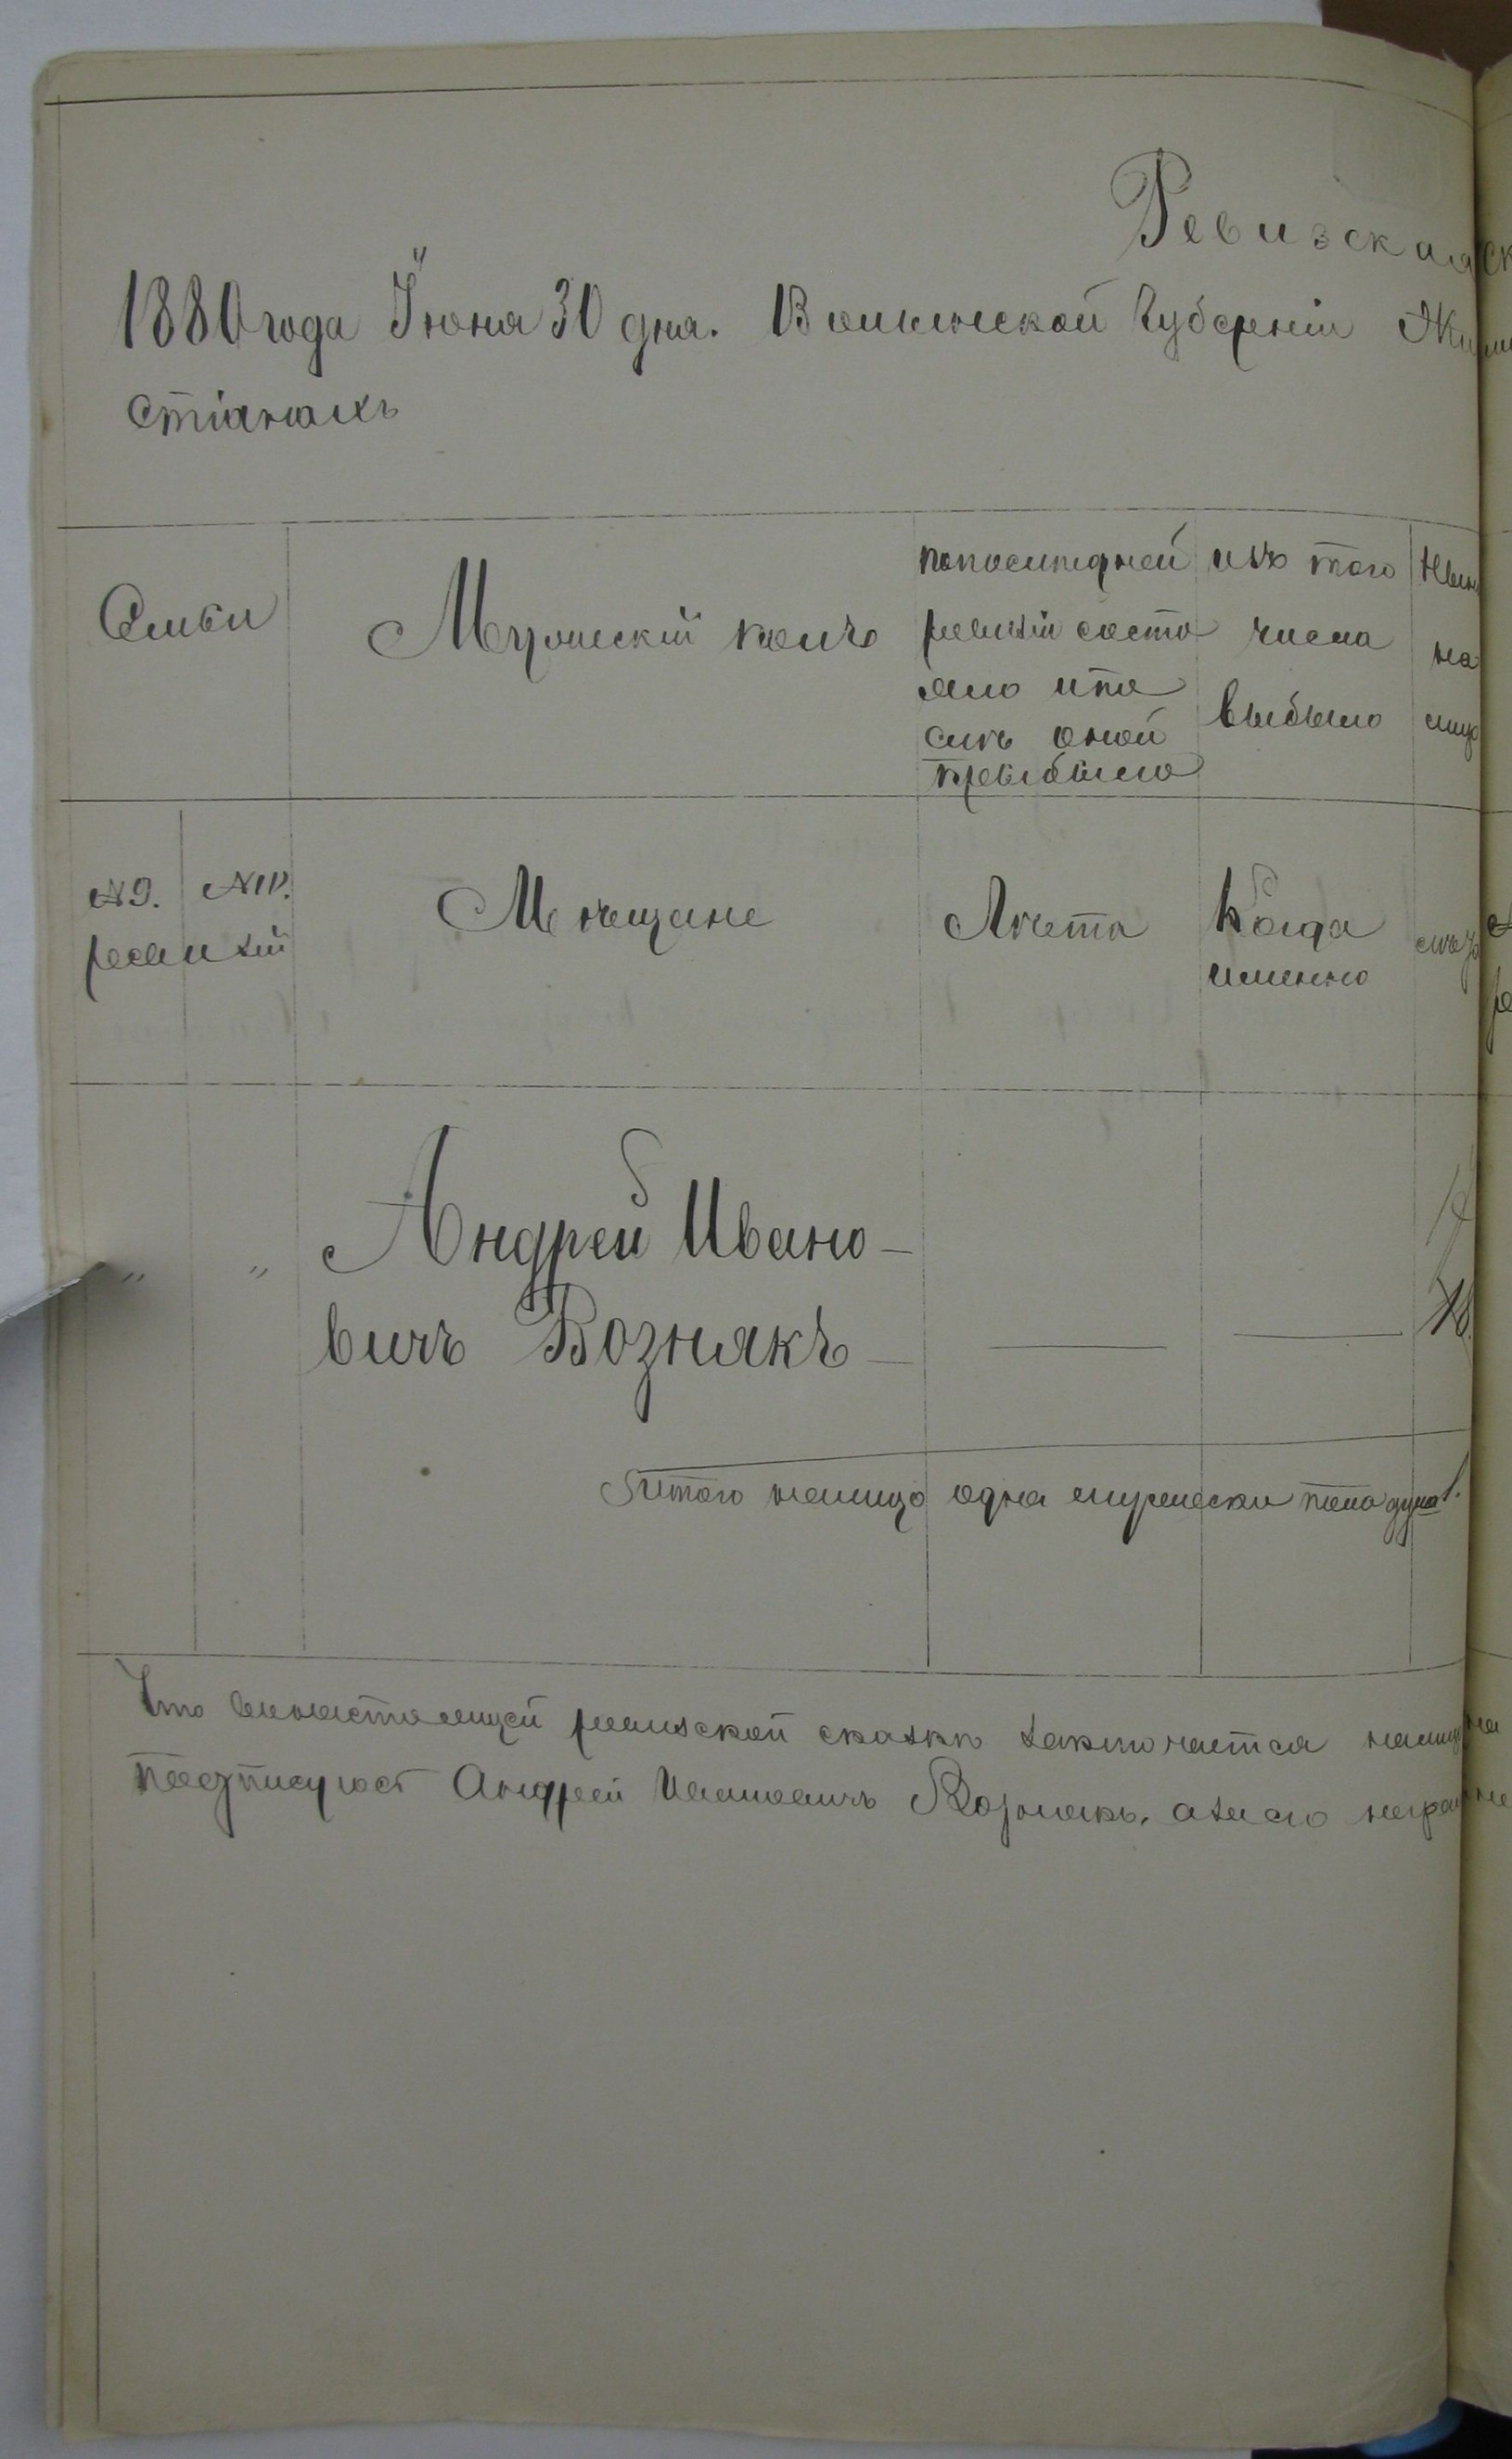 Ревизская
1880 года Іюня 30 дня. Волынской Губерніи Жи
стіанахъ
Семьи
Мужескій полъ
по послѣдней
ревизіи состо
яло и по
слѣ оной
прибыло
изъ того
числа
выбыло
Нын
на
лицо
№ 9. № 10.
ревизій
Мѣщане
Лѣта
Когда
именно
" "
Андрей Ивано-
вичъ Вознякъ
18.
Итого налицо одна мужеска пола душа 1.
Что въ настоящей ревизской сказкѣ заключается налицо
подписуюсь Андрей Ивановичъ Вознякъ, а за его негра